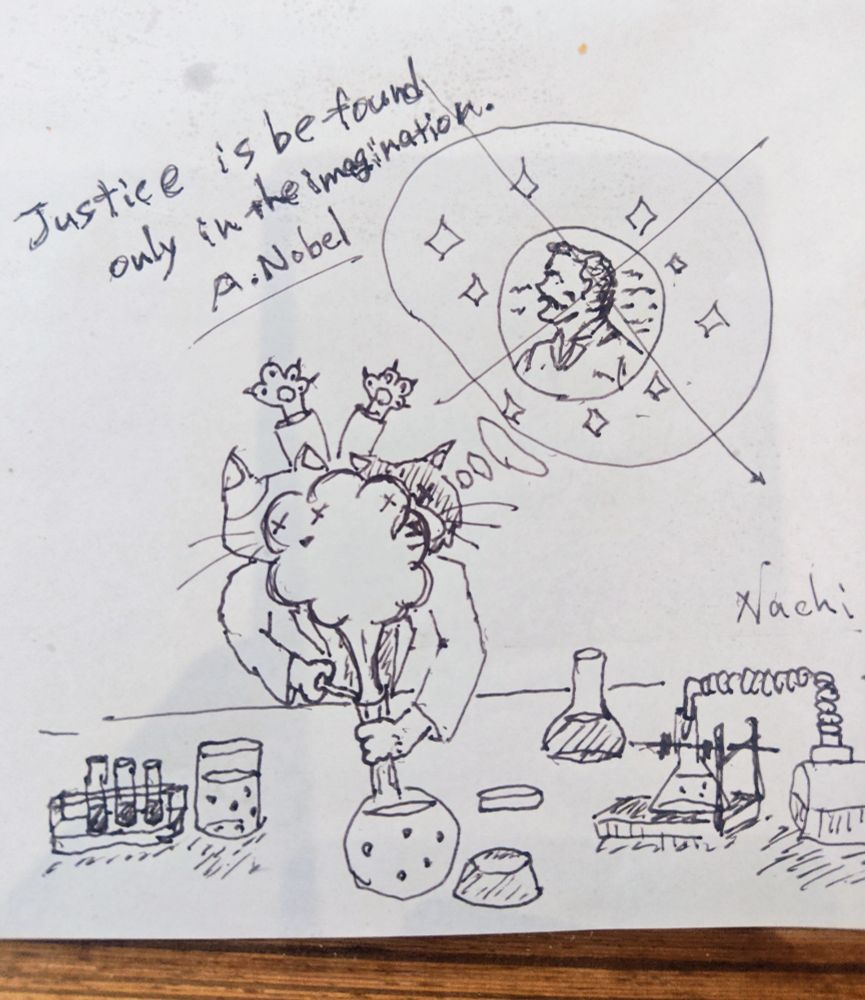 Justice is be found
only in the imagination.
A. Nobel
Nachi